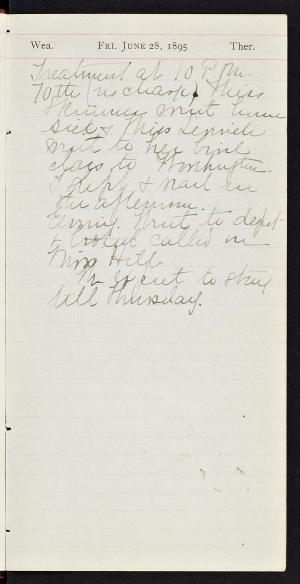 Wea. FRI. JUNE 28, 1895 Ther.
Treatment at 10 P.M.
70th (no charge) Miss
Skinner went home
sick & Miss
went to her
class to
I slept & read in
the afternoon.
Evening. Went to depot
& called on
Miss Hill.
to stay
till Thursday.